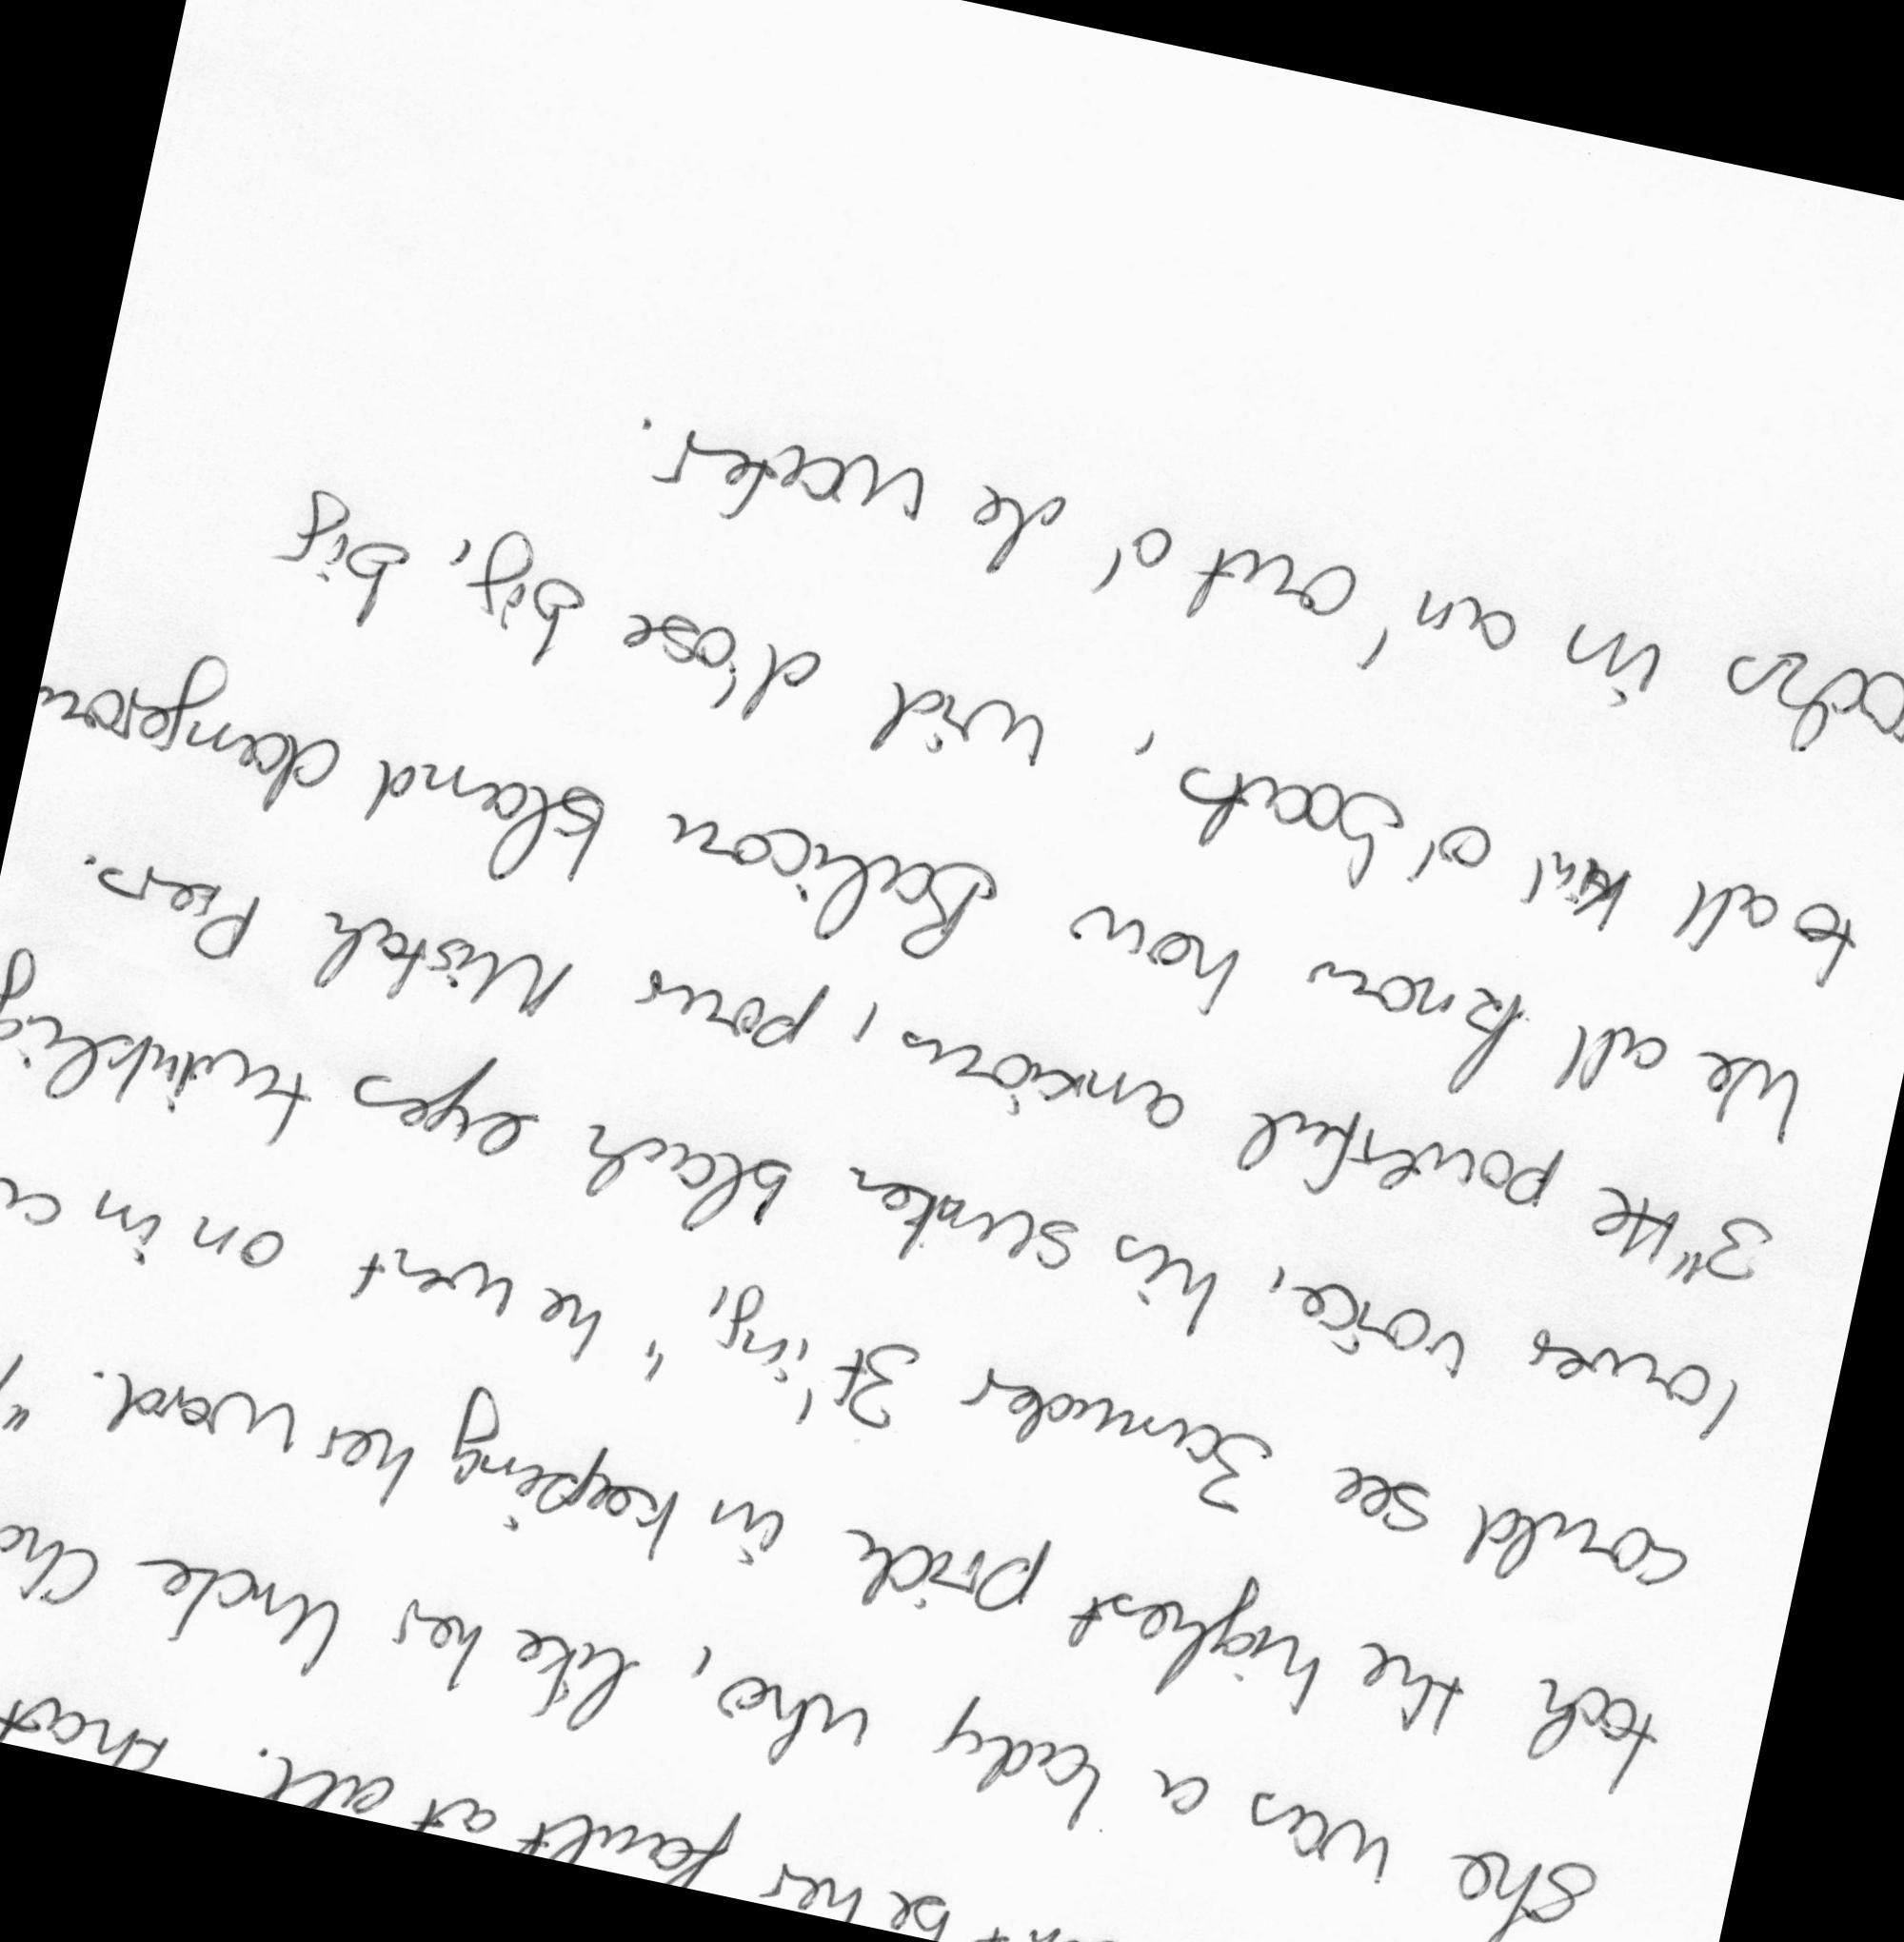 be her fault at all. that
She was a lady who, like her Uncle
took the highest pride in keeping her word. "
could see Samuder 3t'ing," he went on in
lower voice, his sunken black eyes twinklig
3"He powerful anxious, pour Mistah Pier.
We all know how Balicou bland dangerou
to all kin' o' boats, wid d'ose big, big
in an' out o' de water.